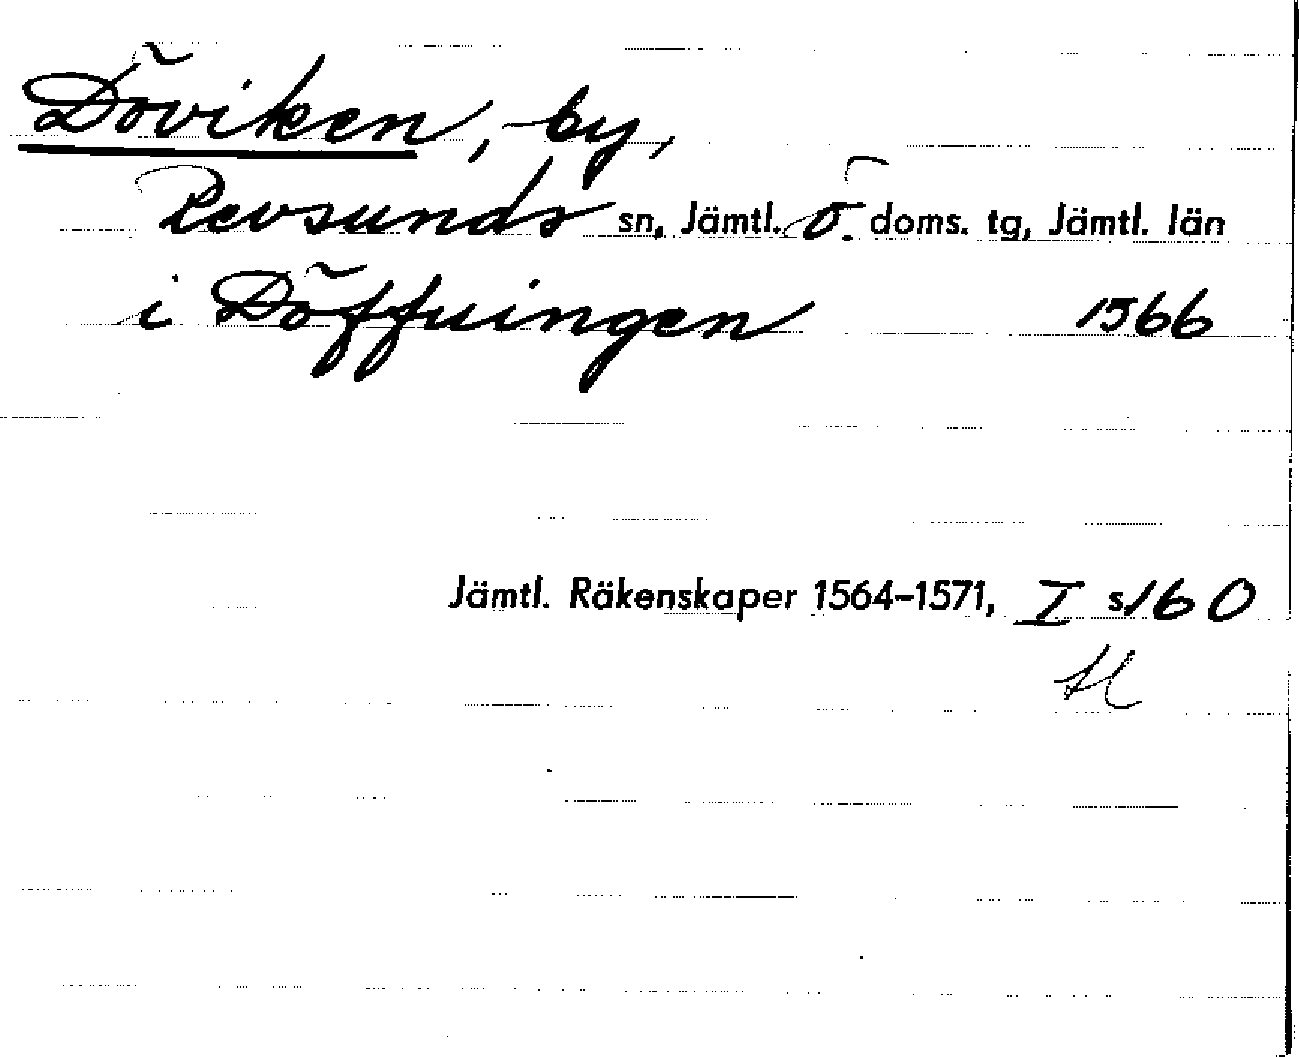 Döviken, by,
Revsunds sn, Jämtl. Ö. doms. tg, Jämtl. län
i Döffuingen 1566
Jämtl. Räkenskaper 1564-1571, I s160